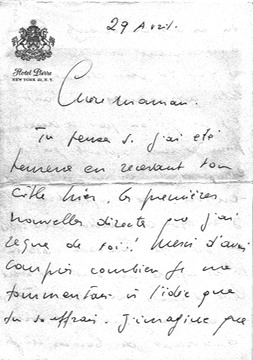 29 Avril.
Hotel Pierre
NEW YORK 21, N.Y.
Chère maman.
Tu penses si j'ai été
heureuse en recevant ton
câble hier, les premières
nouvelles directes que j'ai
reçue de toi! Merci d'avoir
compris combien je me
tourmentais à l'idée que
tu souffrais. J'imagine que